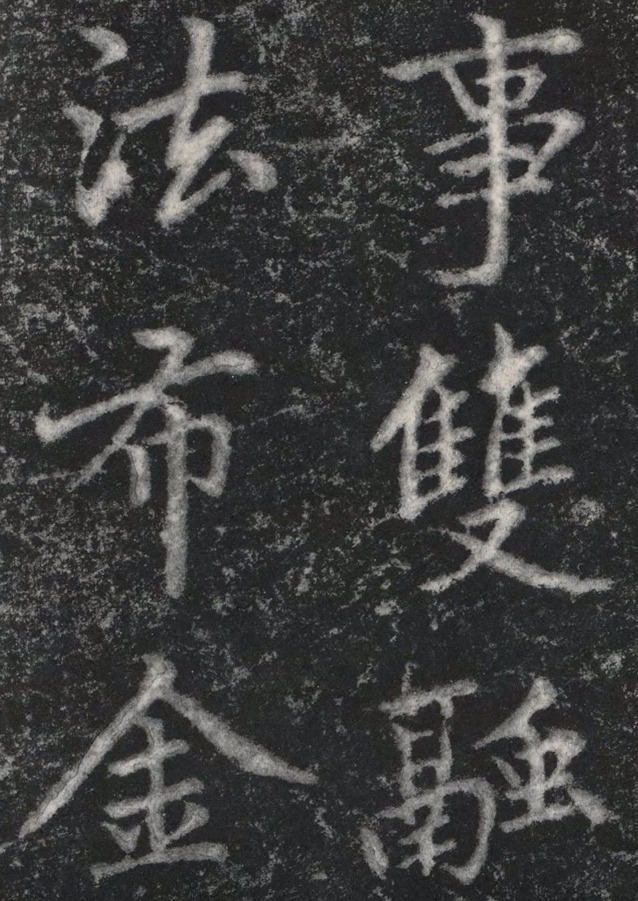 事雙融
法布金